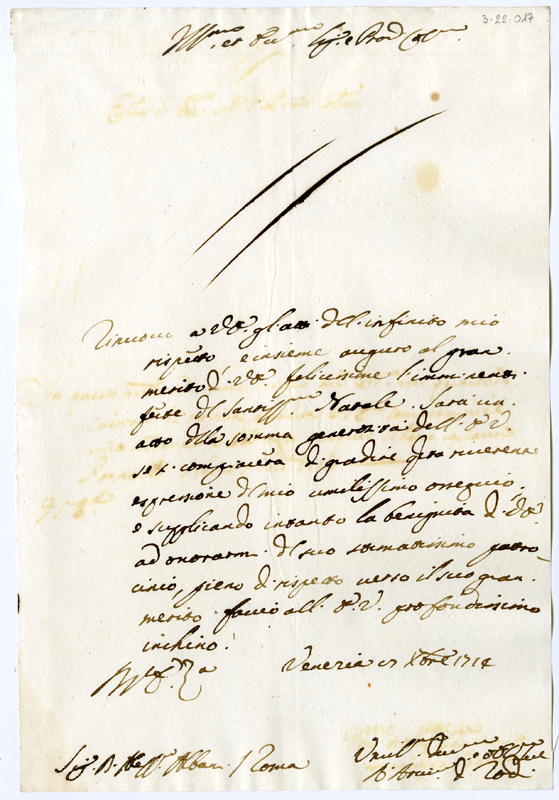 3-22.017
Ill.mo et Sig.e Pron Col.mo
Rinuovo a V.S. gl'atti del infinito mio
rispetto e insieme auguro al gran
merito di V.S. felicissime l'imminenti
feste del Santiss.mo Natale. Sarà un
atto della somma generosità dell.
se si compiacerà di gradire questa riverente
espressione del mio umilissimo ossequio,
e supplicando intanto la benignità di V.S.
ad onorarmi del suo stimatissimo patro-
cinio, pieno di rispetto verso il suo gran
merito faccio all. profondissimo
inchino.
Venezia 17 Xbre 1714
Sig. D. Albani / Roma
Umil.